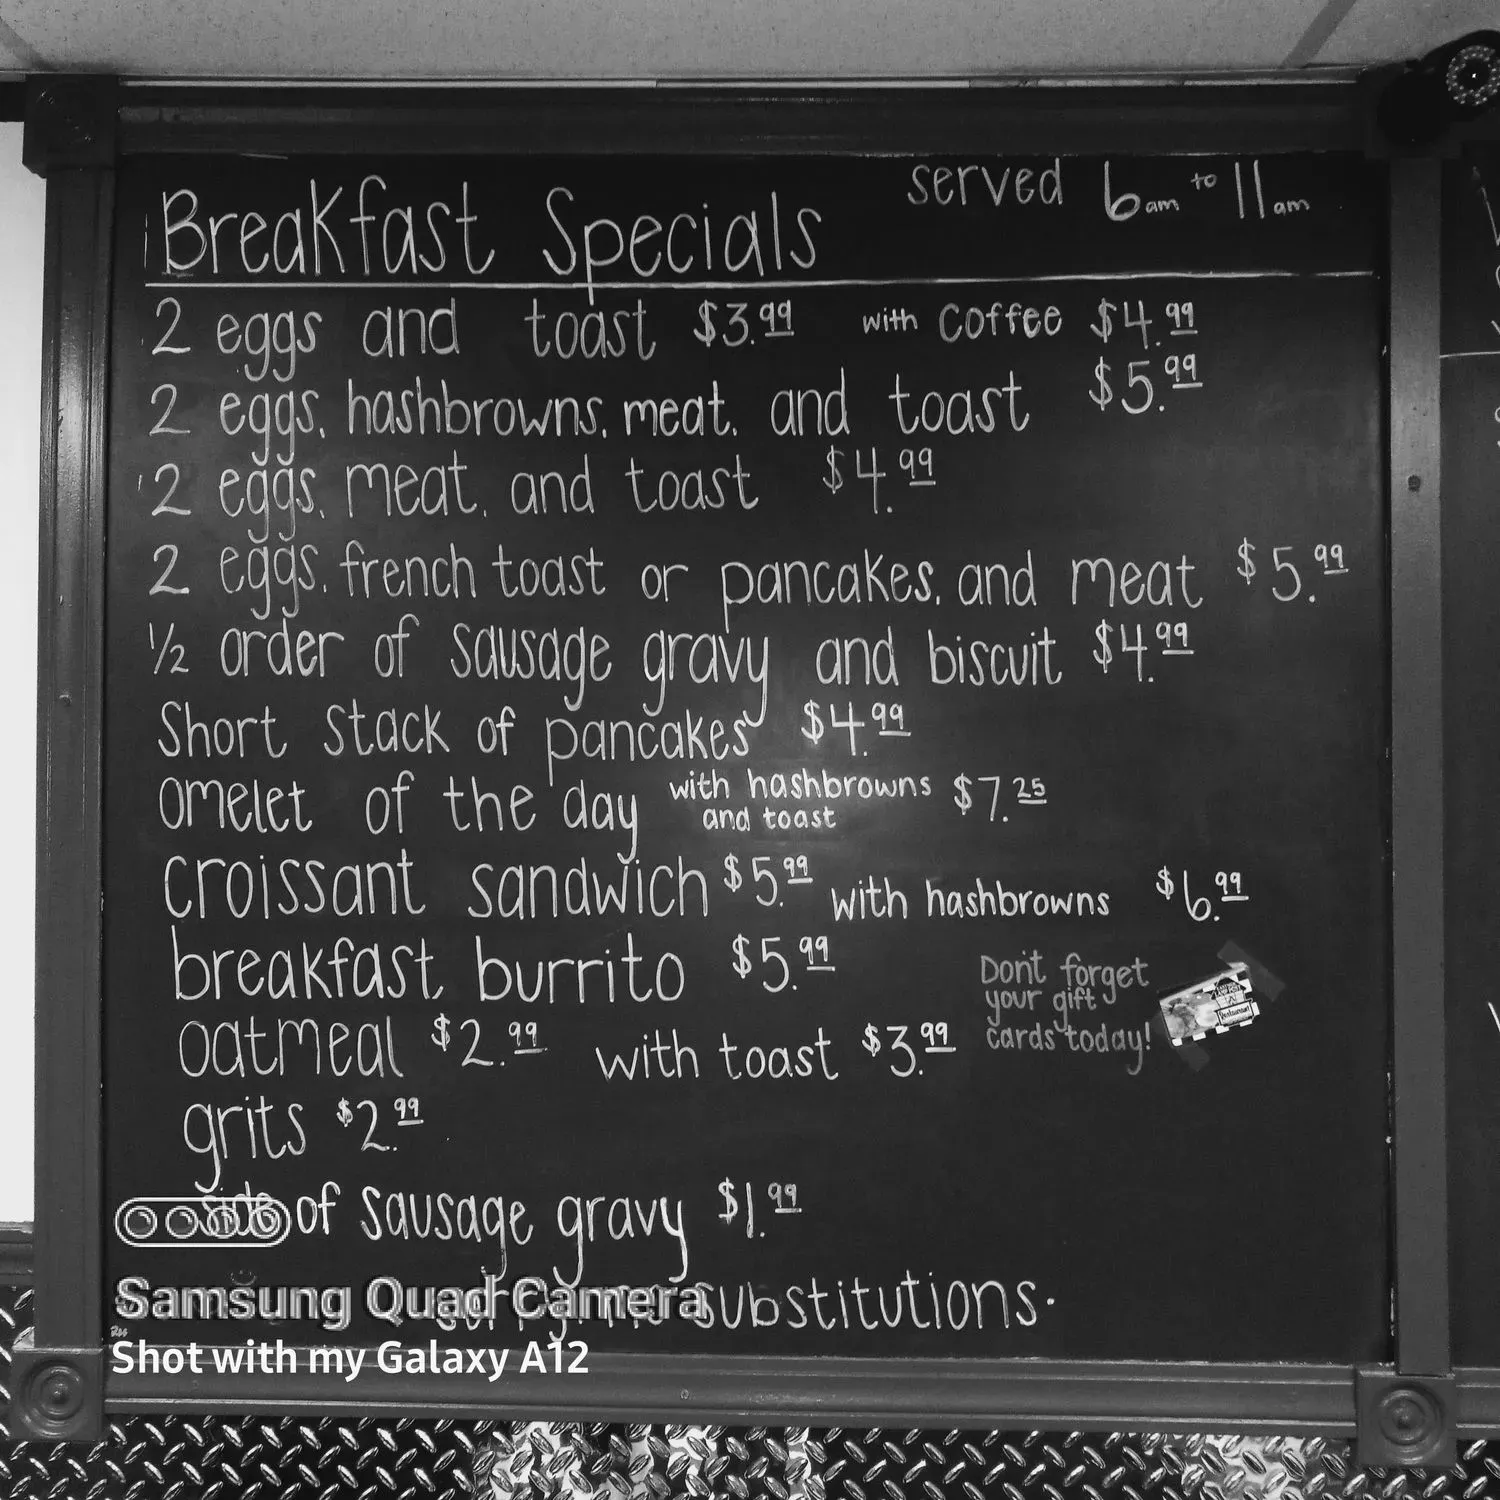 Breakfast Specials served 6am to 11am
2 eggs and toast $3.99 with coffee $4.99
2 eggs, hashbrowns, meat, and toast $5.99
2 eggs, meat, and toast $4.99
2 eggs, french toast or pancakes, and meat $5.99
1/2 order of sausage gravy and biscuit $4.99
Short stack of pancakes $4.99
omelet of the day with hashbrowns and toast $7.25
croissant sandwich $5.99 with hashbrowns $6.99
breakfast burrito $5.99
Don't forget
your gift
cards today!
oatmeal $2.99 with toast $3.99
grits $2.99
side of sausage gravy $1.99
sorry, no substitutions.
Restaurant
Samsung Quad Camera
Shot with my Galaxy A12